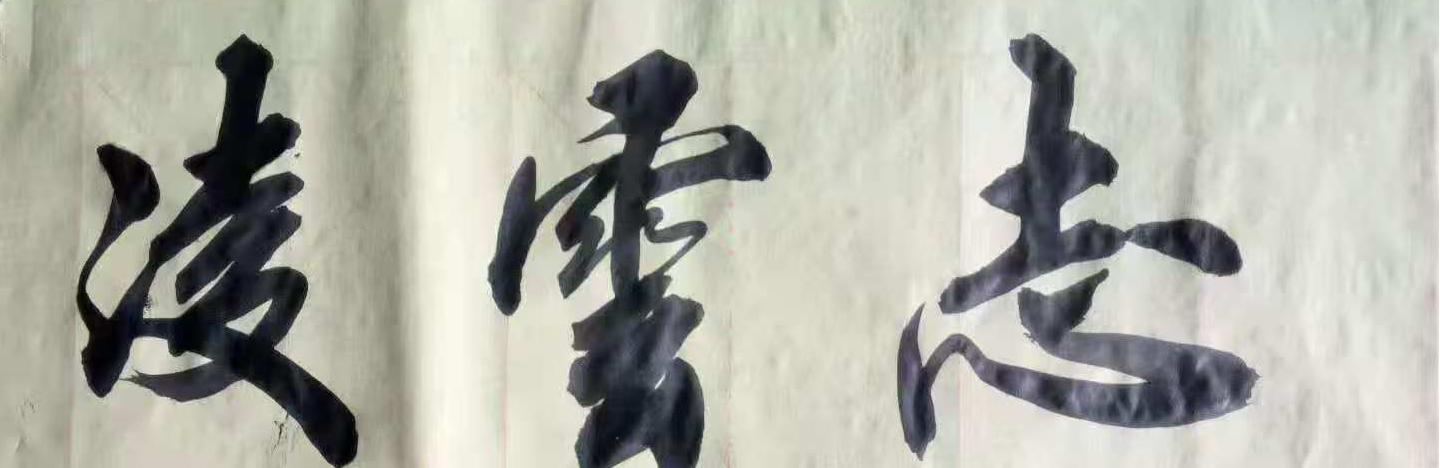 凌雲志